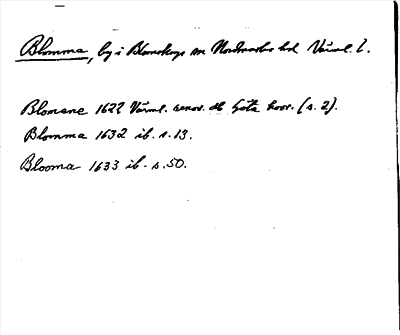 Blomma, by i Blomskogs sn Nordmarks hd Värml. l.
Blomane 1622 Värml. renov. db Göta hovr. (s. 2).
Blomma 1632 ib. s. 13.
Blooma 1633 ib. s. 50.